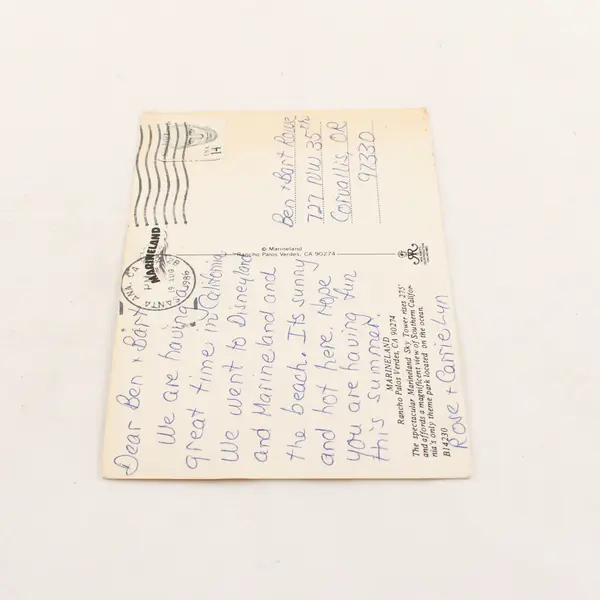 Dear Ben + Bart
We are having a
great time in California
We went to Disneyland
and Marineland and
the beach. Its sunny
and hot here. Hope
you are having fun
this summer.
MARINELAND
Rancho Palos Verdes, CA 90274
The spectacular Marineland Sky Tower rises 275'
and affords a magnificent view of Southern Califor-
nia's only theme park located on the ocean.
B14230
Rose + Carrie Lyn
© Marineland
Rancho Palos Verdes, CA 90274
MARINELAND
SANTA ANA, CA
PM
19 AUG
1986
USA
14
Ben + Bart Rowe
727 NW 35th
Corvallis, OR
97330